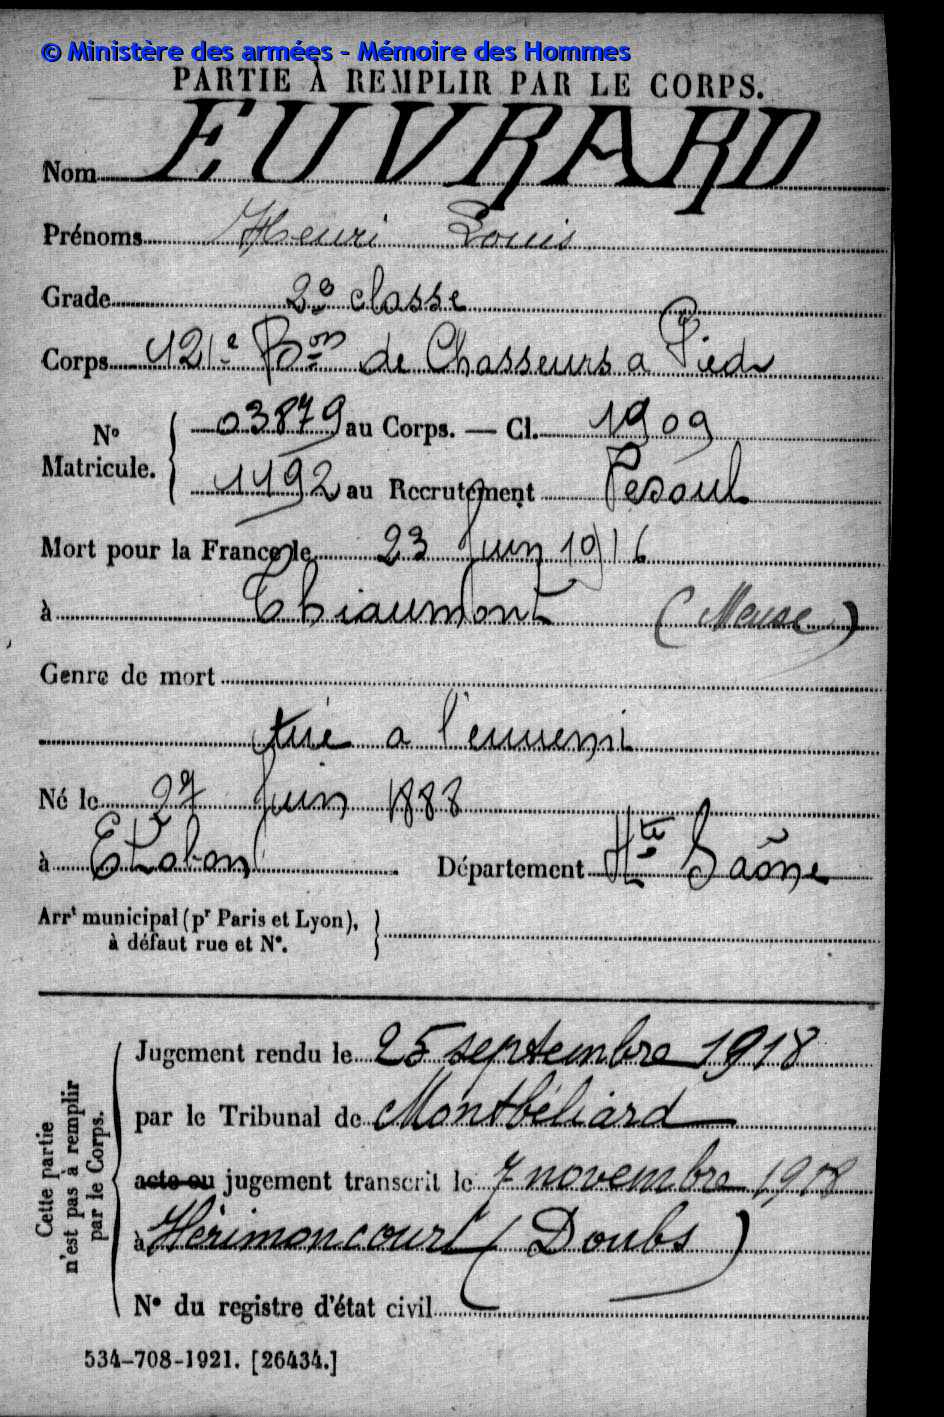 © Ministère des armées - Mémoire des Hommes
PARTIE À REMPLIR PAR LE CORPS.
Nom EUVRARD
Prénoms Henri Louis
Grade 2e classe
Corps 121e Bon de Chasseurs a Pied
No Matricule. { 03879 au Corps. — Cl. 1909
1192 au Recrutement Vesoul
Mort pour la France le 23 Juin 1916
à Thiaumont (Meuse)
Genre de mort
tué a l'ennemi
Né le 27 Juin 1888
à Etobon Département Hte Saône
Arrt municipal (pr Paris et Lyon),
à défaut rue et No.
Cette partie n'est pas à remplir par le Corps.
Jugement rendu le 25 septembre 1918
par le Tribunal de Montbéliard
acte ou jugement transcrit le 7 novembre 1918
à Hérimoncourt (Doubs)
No du registre d'état civil
534-708-1921. [26434.]